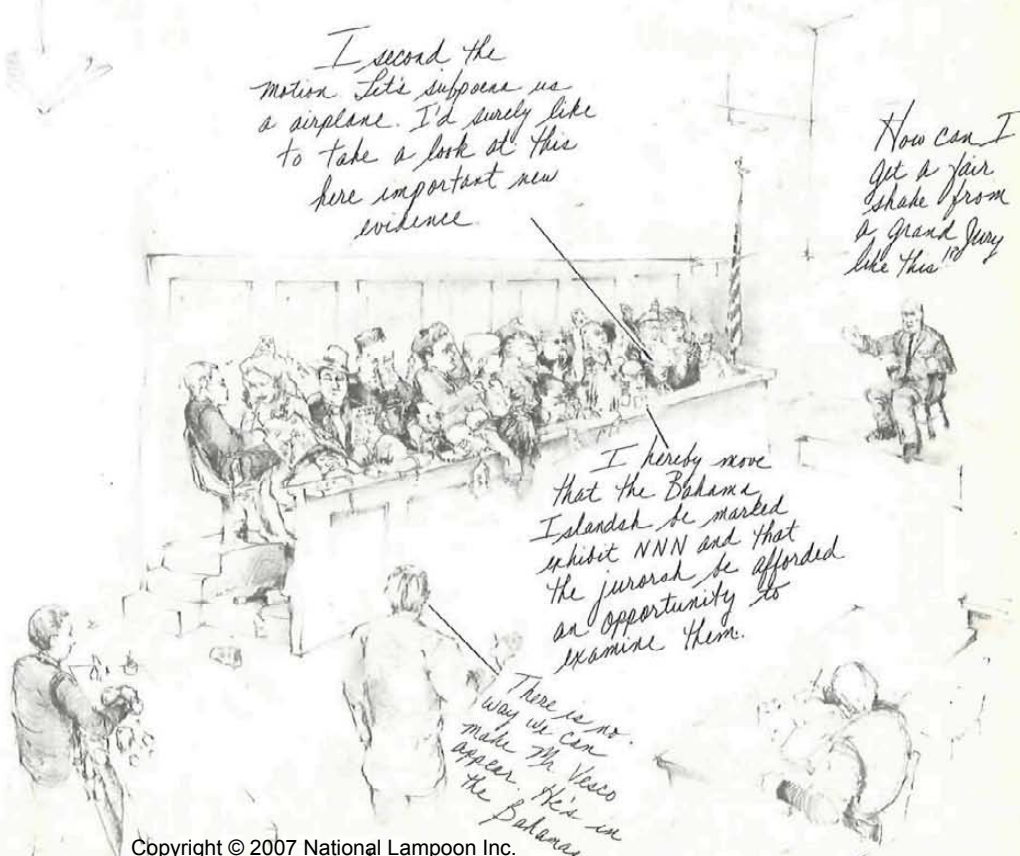 I second the
motion. Let's subpoena us
a airplane. I'd surely like
to take a look at this
here important new
evidence.
How can I
get a fair
shake from
a Grand Jury
like this!?
I hereby move
that the Bahama
Islandsh be marked
exhibit NNN and that
the jurorsh be afforded
an opportunity to
examine them.
There is no
way we can
make Mr Vesco
appear. He's in
the Bahamas
Copyright © 2007 National Lampoon Inc.